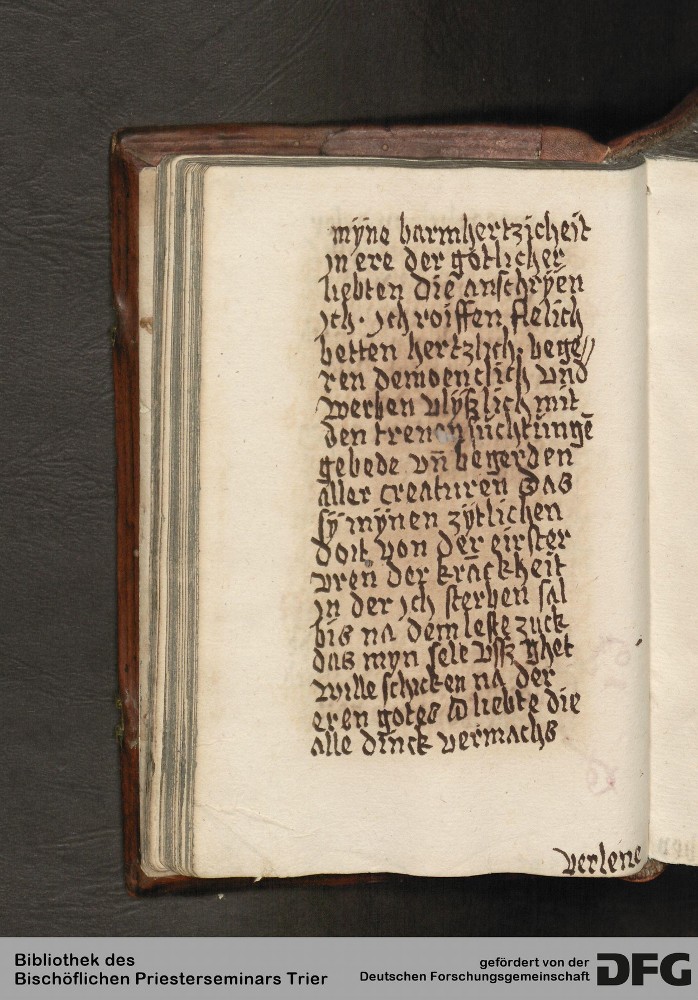 mÿne barmhertzicheit
in ere der gotlicher
liebten die anschrÿen
ich · ich roiffen flelich
betten hertzlich · bege⸗
ren demoenclich vnd
werben vlÿßlich mit
den trenen süchtüngē
gebede vn̄ begerden
aller creaturen das
sÿ mÿnen zÿtlichen
doit von der eirster
vren der krāckheit
in der ich sterben sal
bis na dem leste zuck
das myn sele vssz ghet
wille schicken na der
eren gotes liebte die
alle dinck vermachs
verlene
Bibliothek des
Bischöflichen Priesterseminars Trier
gefördert von der
Deutschen Forschungsgemeinschaft
DFG